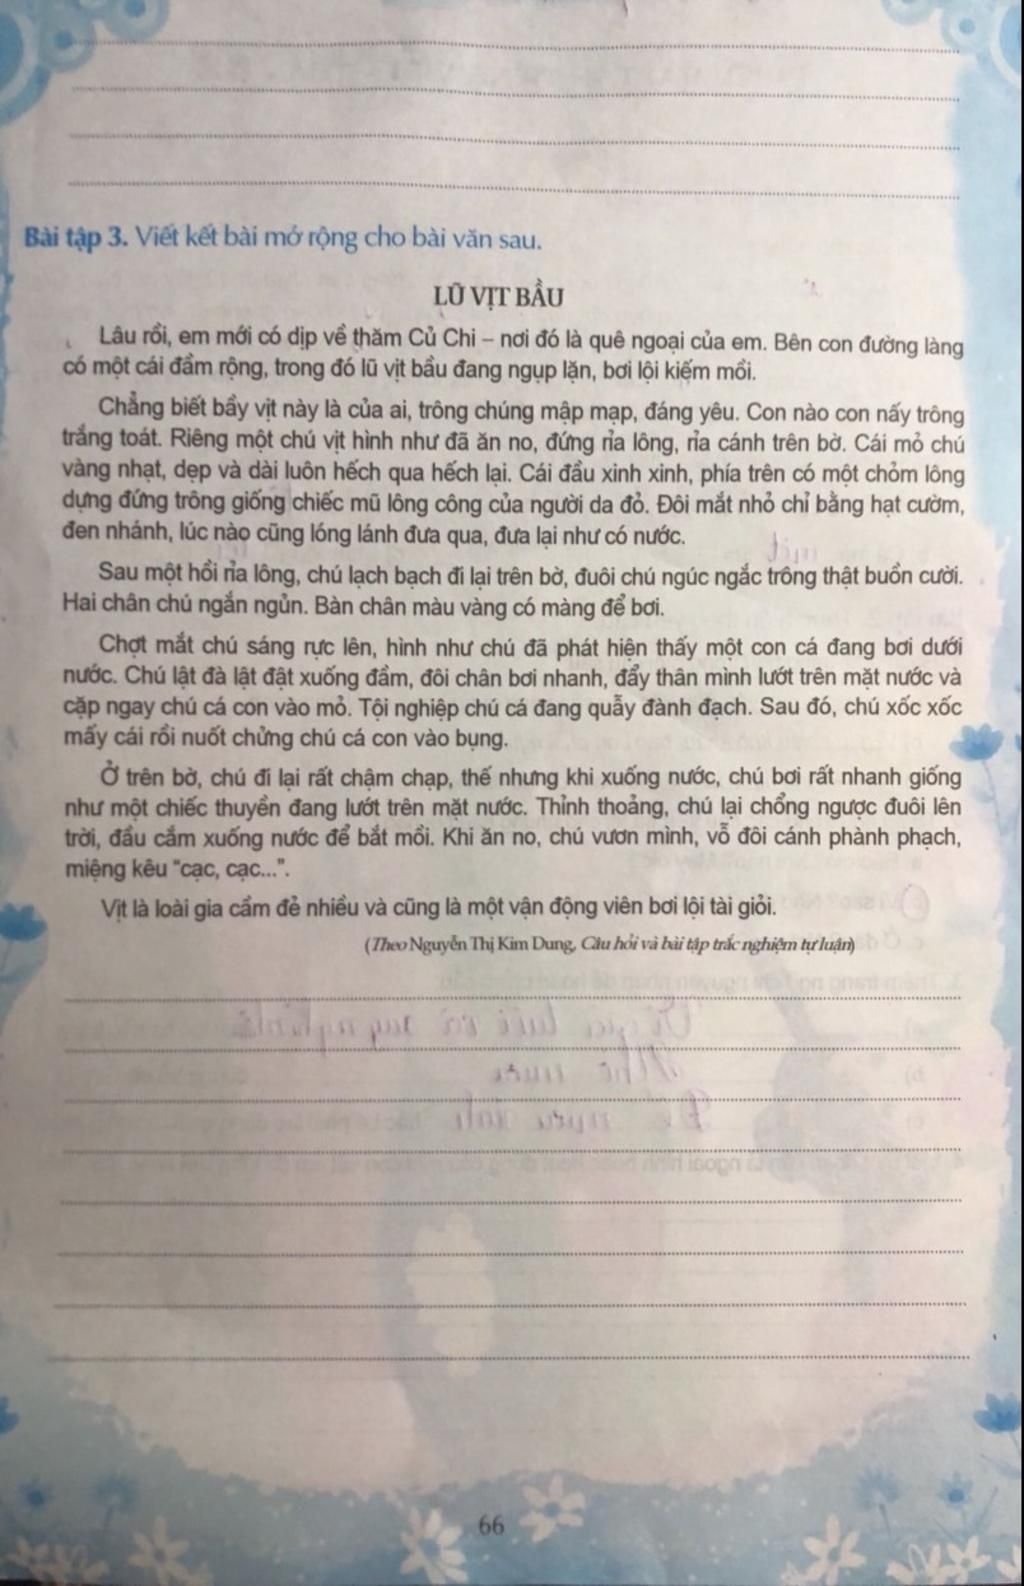 Bài tập 3. Viết kết bài mở rộng cho bài văn sau.
LŨ VỊT BẦU
Lâu rồi, em mới có dịp về thăm Củ Chi – nơi đó là quê ngoại của em. Bên con đường làng
có một cái đầm rộng, trong đó lũ vịt bầu đang ngụp lặn, bơi lội kiếm mồi.
Chẳng biết bầy vịt này là của ai, trông chúng mập mạp, đáng yêu. Con nào con nấy trông
trắng toát. Riêng một chú vịt hình như đã ăn no, đứng rỉa lông, rỉa cánh trên bờ. Cái mỏ chú
vàng nhạt, dẹp và dài luôn hếch qua hếch lại. Cái đầu xinh xinh, phía trên có một chỏm lông
dựng đứng trông giống chiếc mũ lông công của người da đỏ. Đôi mắt nhỏ chỉ bằng hạt cườm,
đen nhánh, lúc nào cũng lóng lánh đưa qua, đưa lại như có nước.
Sau một hồi rỉa lông, chú lạch bạch đi lại trên bờ, đuôi chú ngúc ngắc trông thật buồn cười.
Hai chân chú ngắn ngủn. Bàn chân màu vàng có màng để bơi.
Chợt mắt chú sáng rực lên, hình như chú đã phát hiện thấy một con cá đang bơi dưới
nước. Chú lật đà lật đật xuống đầm, đôi chân bơi nhanh, đẩy thân mình lướt trên mặt nước và
cặp ngay chú cá con vào mỏ. Tội nghiệp chú cá đang quẫy đành đạch. Sau đó, chú xốc xốc
mấy cái rồi nuốt chửng chú cá con vào bụng.
Ở trên bờ, chú đi lại rất chậm chạp, thế nhưng khi xuống nước, chú bơi rất nhanh giống
như một chiếc thuyền đang lướt trên mặt nước. Thỉnh thoảng, chú lại chổng ngược đuôi lên
trời, đầu cắm xuống nước để bắt mồi. Khi ăn no, chú vươn mình, vỗ đôi cánh phành phạch,
miệng kêu “cạc, cạc...”.
Vịt là loài gia cầm đẻ nhiều và cũng là một vận động viên bơi lội tài giỏi.
(Theo Nguyễn Thị Kim Dung, Câu hỏi và bài tập trắc nghiệm tự luận)
66